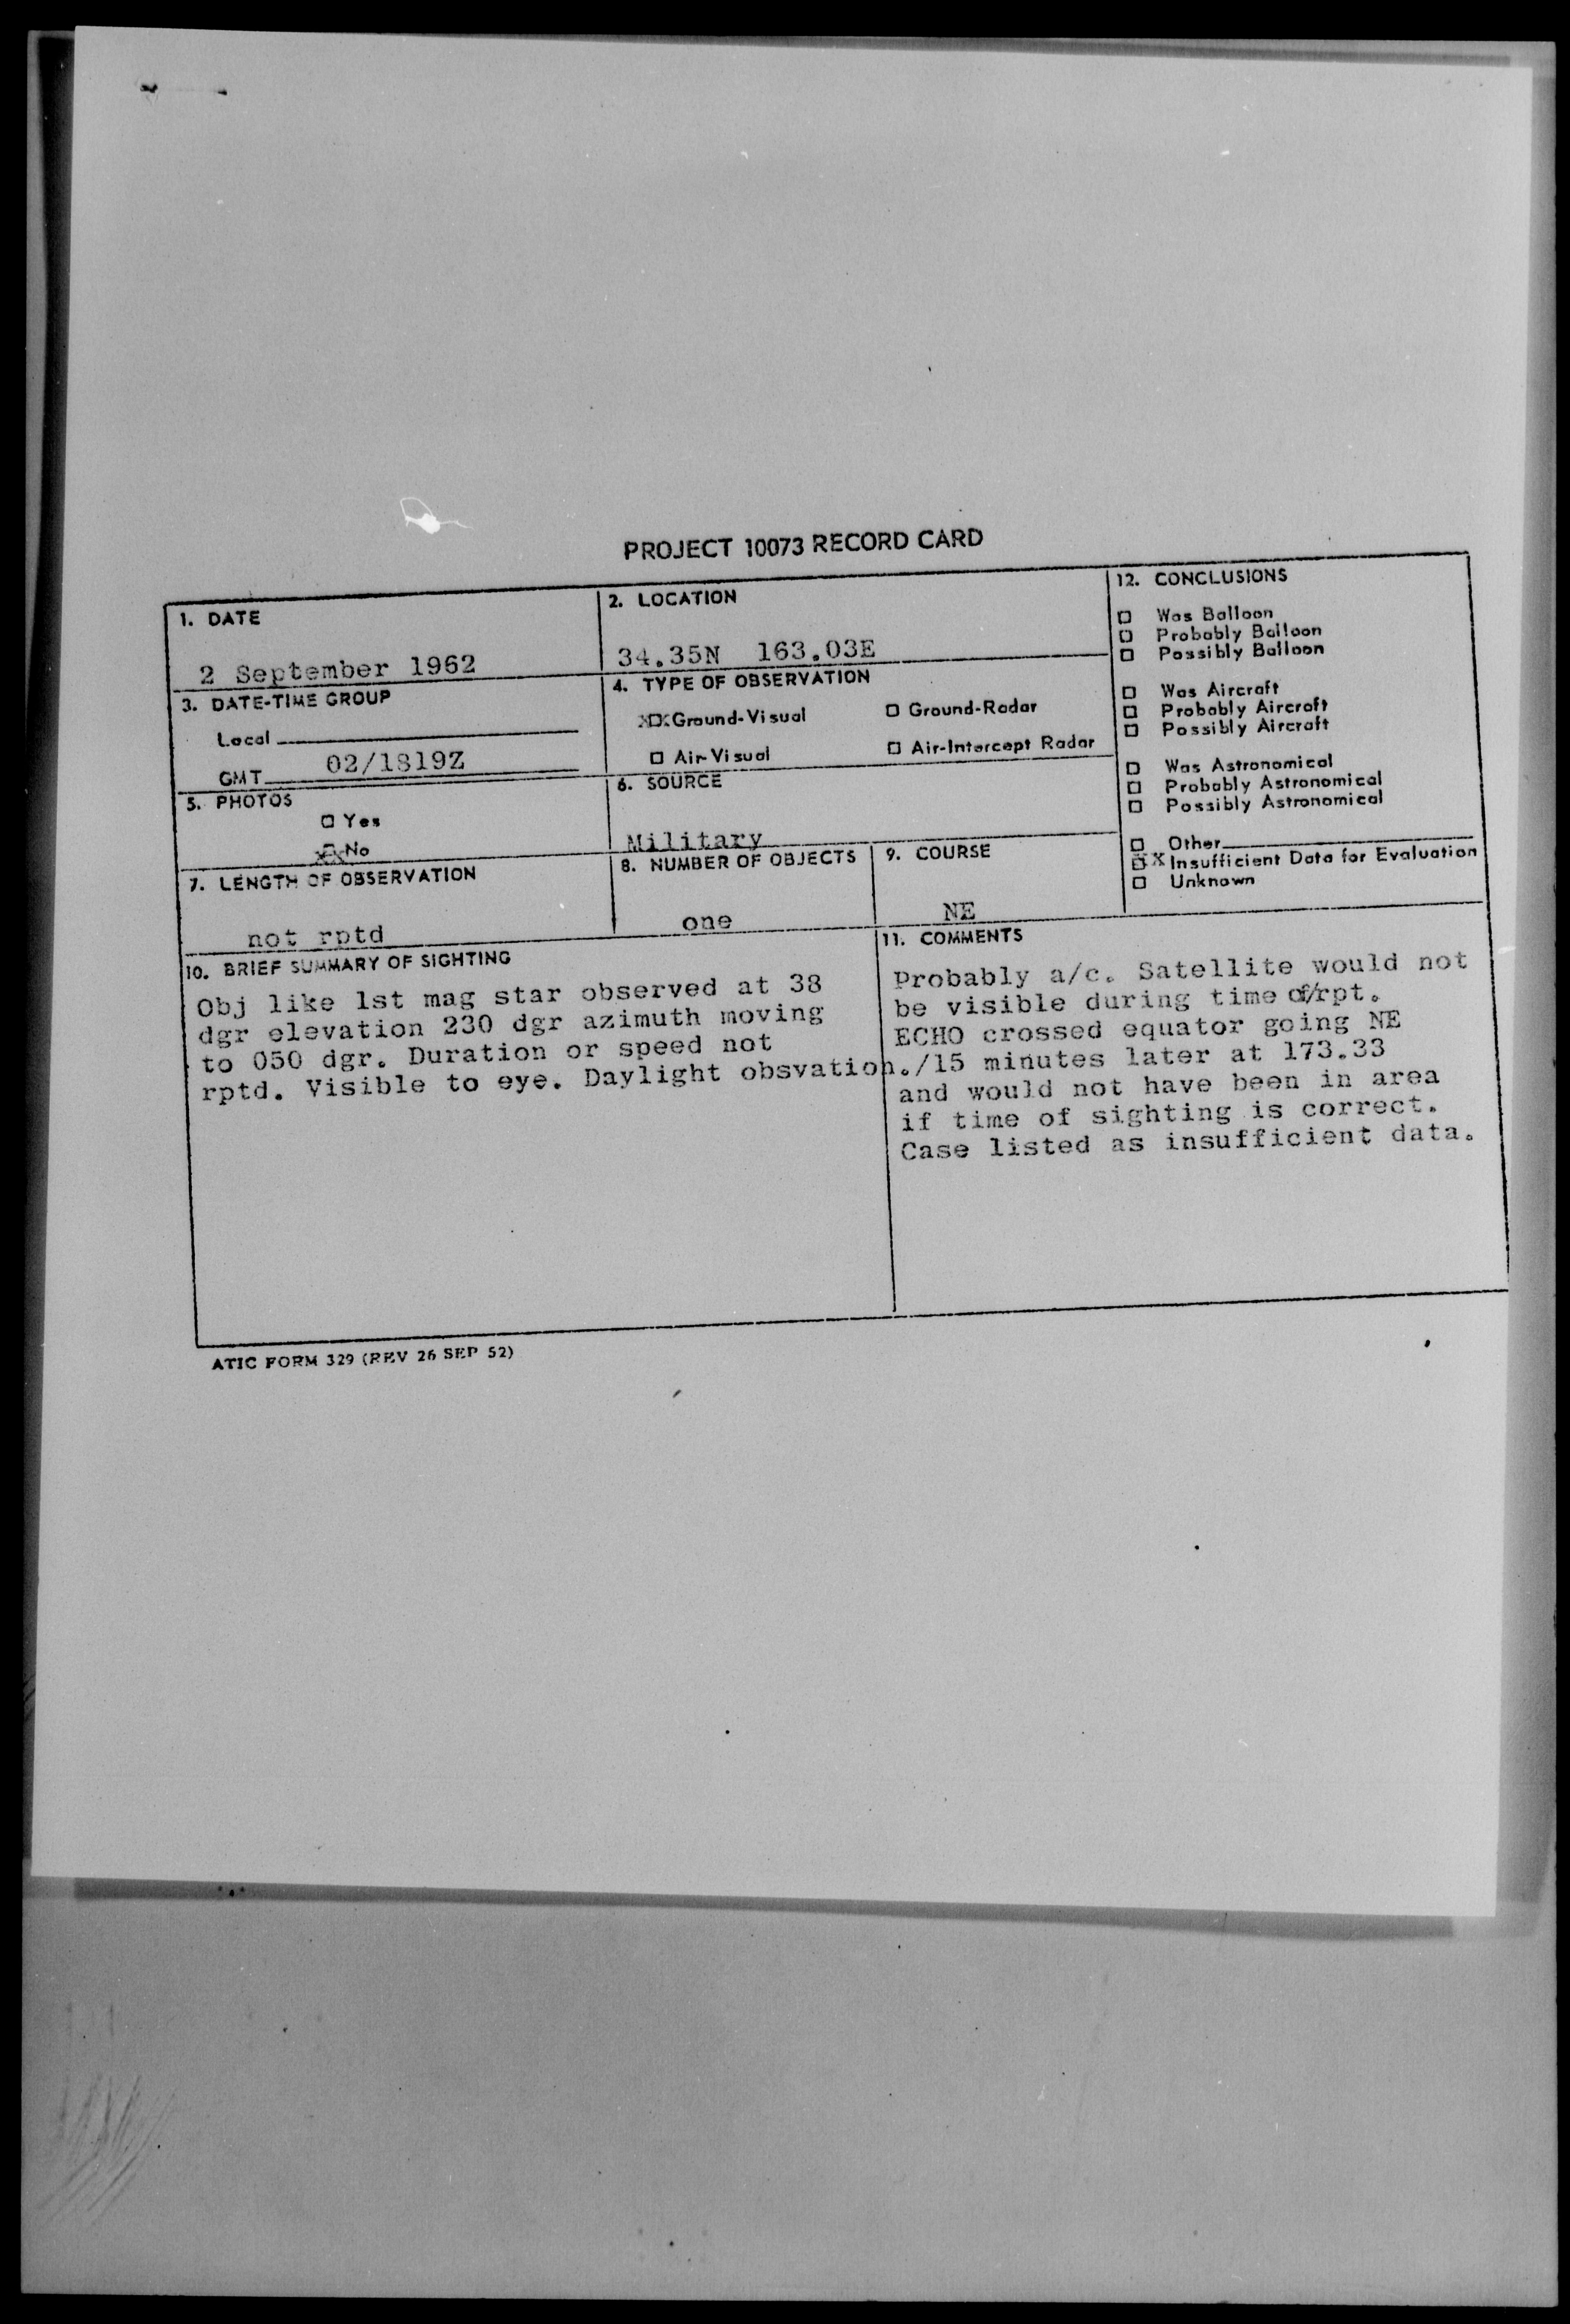 PROJECT 10073 RECORD CARD
1. DATE
2 September 1962
2. LOCATION
34.35N 163.03E
3. DATE-TIME GROUP
Local
GMT 02/1819Z
4. TYPE OF OBSERVATION
XX Ground-Visual
Ground-Radar
Air-Visual
Air-Intercept Radar
5. PHOTOS
Yes
XX No
6. SOURCE
Military
7. LENGTH OF OBSERVATION
not rptd
8. NUMBER OF OBJECTS
one
9. COURSE
NE
10. BRIEF SUMMARY OF SIGHTING
Obj like 1st mag star observed at 38
dgr elevation 230 dgr azimuth moving
to 050 dgr. Duration or speed not
rptd. Visible to eye. Daylight obsvation.
11. COMMENTS
Probably a/c. Satellite would not
be visible during time of/rpt.
ECHO crossed equator going NE
/15 minutes later at 173.33
and would not have been in area
if time of sighting is correct.
Case listed as insufficient data.
12. CONCLUSIONS
Was Balloon
Probably Balloon
Possibly Balloon
Was Aircraft
Probably Aircraft
Possibly Aircraft
Was Astronomical
Probably Astronomical
Possibly Astronomical
Other
XX Insufficient Data for Evaluation
Unknown
ATIC FORM 329 (REV 26 SEP 52)